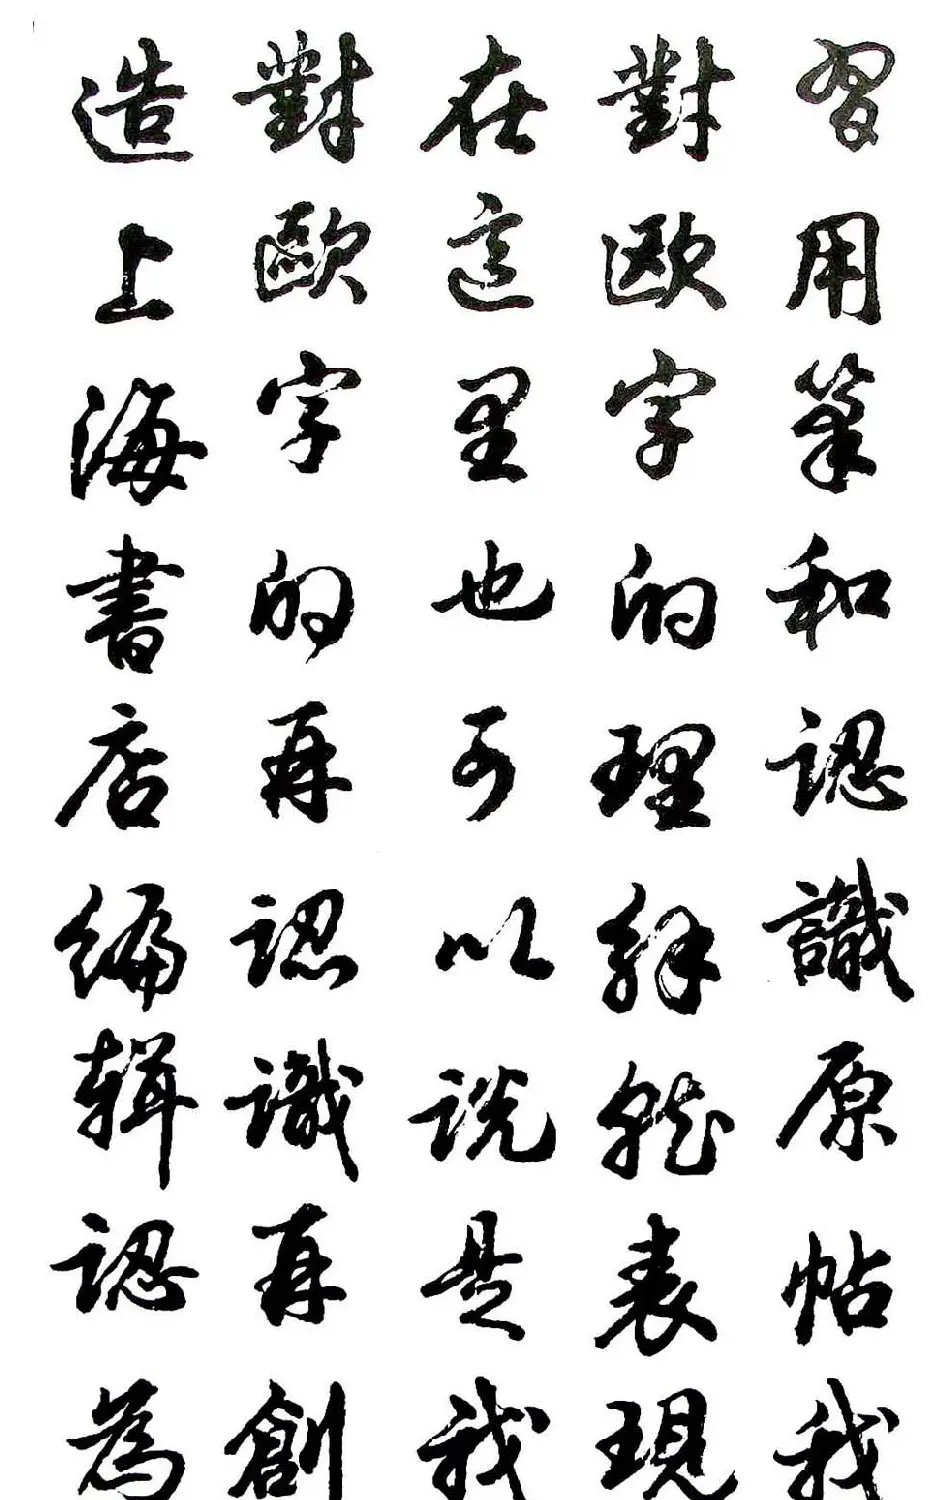 習用筆和認識原帖我
對歐字的理解就表現
在這里也可以説是我
對歐字的再認識再創
造上海書店編輯認為